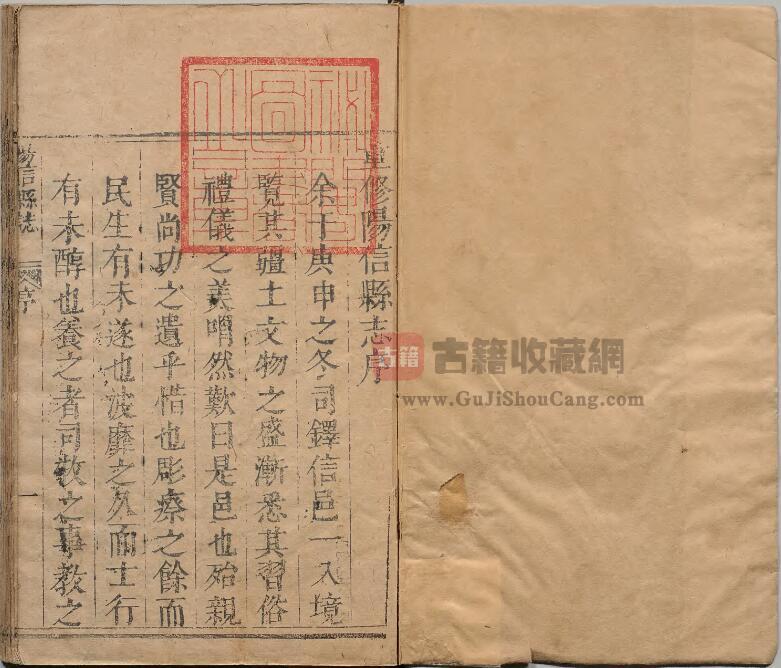 重修陽信縣志序
余于庚申之冬司鐸信邑一入境
覽其疆土文物之盛漸悉其習俗
禮儀之美喟然歎曰是邑也殆親
賢尚功之遺乎惜也彫瘵之餘而
民生有未遂也波靡之久而士行
有未醇也養之者司牧之事教之
陽信縣志
序
一
古籍
古籍收藏網
www.GuJiShouCang.com